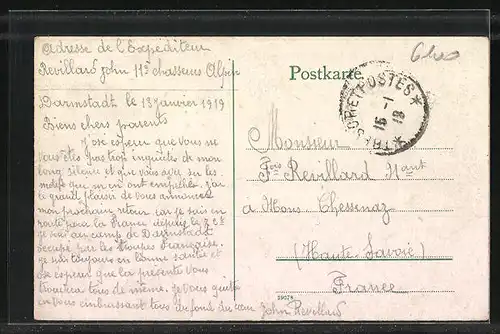 Adresse de l'Expéditeur
Revillard John 11e chasseurs Alpin
Darmstadt le 13 janvier 1919
Biens chers parents
J'ose esperer que vous ne
vous êtes pas trop inquiétés de mon
long silence et que vous avez su les
motifs que m'en ont empêcher. J'ai
le grand plaisir de vous annoncer
mon prochain retour car je suis en
route pour la France depuis le
je suis au camp de Darmstadt
occupé par les troupes Française.
je suis toujours en bonne santé et
ose esperer que la présente vous
trouvera tous de même. Je vous quitte
en vous embrassant tous du fond du cœur John Revillard
Postkarte
TRESOR ET POSTES
15 -1
19
Monsieur
Fois Revillard
à Mons Chessenaz
(Haute-Savoie)
France